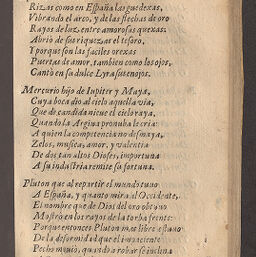 Rizas como en España las guedexas,
Vibrando el arco, y de las flechas de oro
Rayos de luz entre amorosas quexas:
Abrió de sus riquezas el tesoro,
Y porque son las faciles orexas
Puertas de amor, tambien como los ojos,
Cantò en su dulce Lyra sus enojos.
Mercurio hijo de Iupiter y Maya,
Cuya boca dio al cielo aquella via,
Que de candida nieue el cielo raya,
Quando la Argiua pronuba le cria:
A quien la competencia no desmaya,
Zelos, musica, amor, y valentia
De dos tan altos Dioses, importuna
A su industria remite su fortuna.
Pluton que al repartir el mundo tuuo
A España, y quanto mira al Occidente,
El nombre que de Dios del oro obtuuo
Mostrò en los rayos de la torba frente:
Porque entonces Pluton mas libre estuuo
De la deformidad que el
Pecho mouio, quando a robar se inclina